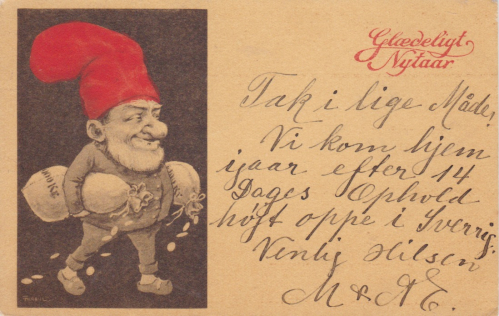 Glædeligt
Nytaar
Tak i lige Måde!
Vi kom hjem
igaar efter 14
Dages Ophold
højt oppe i Sverrig.
Venlig Hilsen
M & AE.